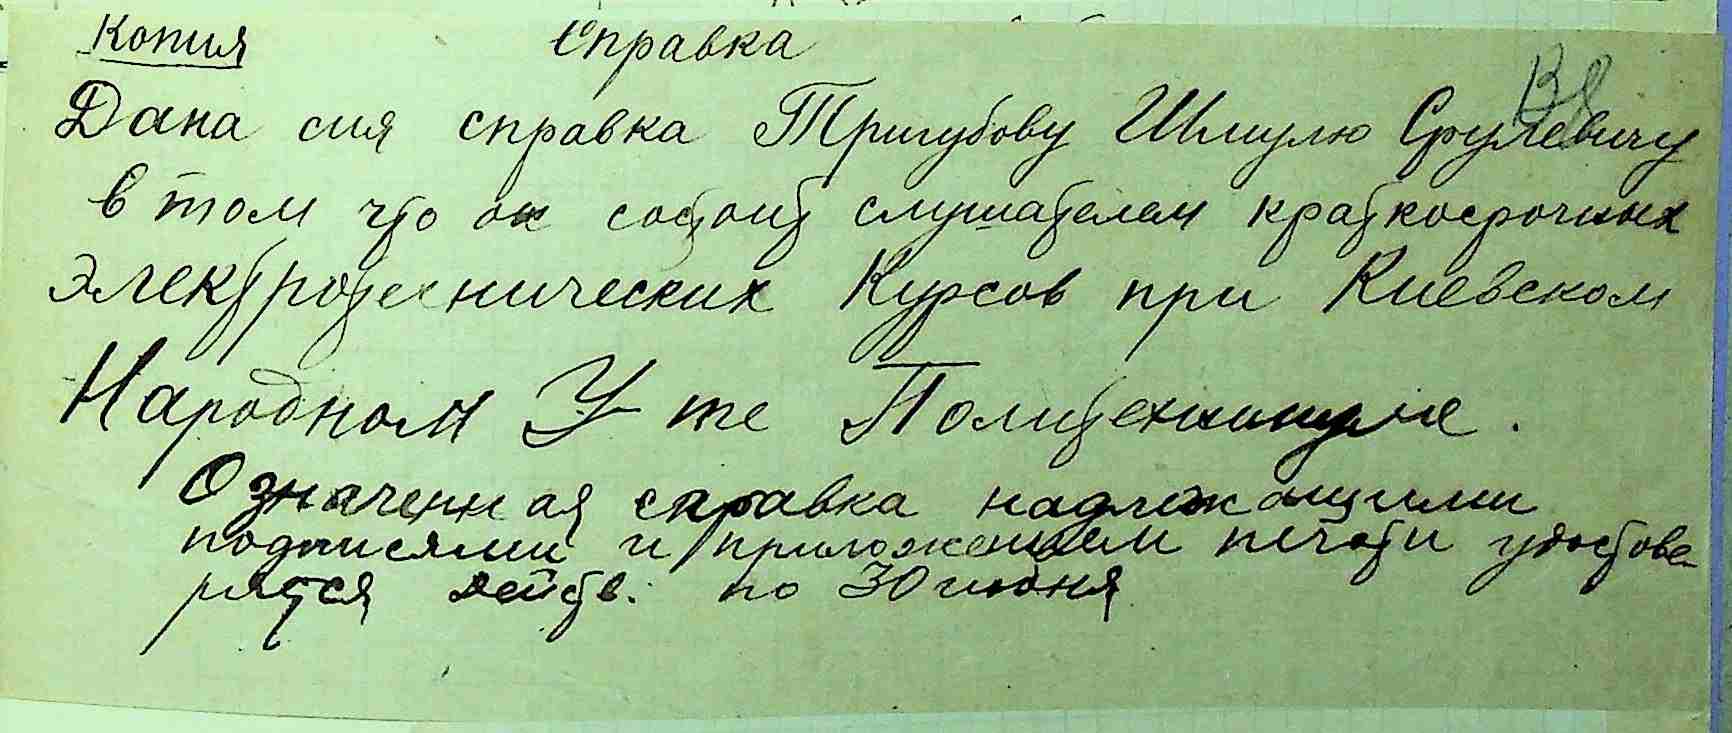 Копия Справка
Дана сия справка Тригубову Шмулю Срулевичу
в том что он состоит слушателем краткосрочных
электротехнических Курсов при Киевском
Народном У-те Политехникуме.
Означенная справка надлежащими
подписями и приложением печати удостове-
рятся действ. по 30 июня